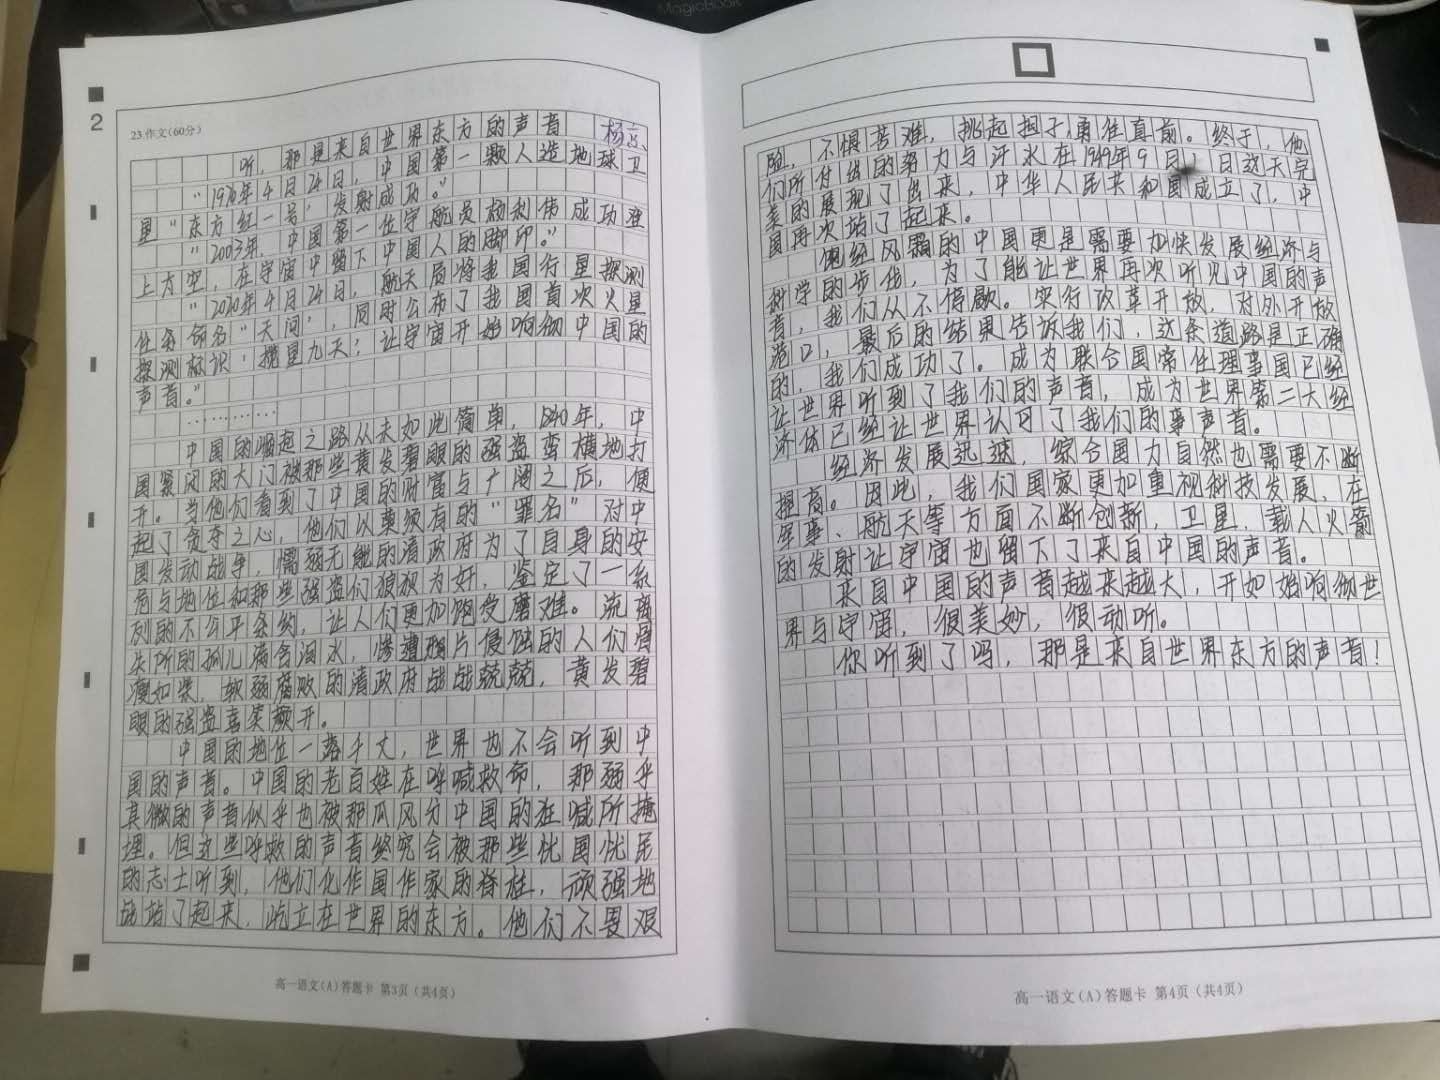 MagicBook
2
23.作文(60分)
听，那是来自世界东方的声音
“1970年4月24日，中国第一颗人造地球卫
星“东方红一号”发射成功。”
“2003年，中国第一位宇航员杨利伟成功登
上太空，在宇宙中留下中国人的脚印。”
“2020年4月24日，航天质将我国行星探测
任务命名“天问”，同时公布了我国首次火星
探测标识‘揽星九天’让宇宙开始响彻中国的
声音。”
…………
中国的崛起之路从未如此简单，1840年，中
国紧闭的大门被那些黄发碧眼的强盗蛮横地打
开。当他们看到了中国的财富与广阔之后，便
起了贪夺之心，他们以莫须有的“罪名”对中
国发动战争，懦弱无能的清政府为了自身的安
危与地位和那些强盗们狼狈为奸，鉴定了一系
列的不公平条约，让人们更加饱受磨难。流离
失所的孤儿满含泪水，惨遭鸦片侵蚀的人们骨
瘦如柴，软弱腐败的清政府战战兢兢，黄发碧
眼的强盗喜笑颜开。
中国的地位一落千丈，世界也不会听到中
国的声音。中国的老百姓在呼喊救命，那弱乎
其微的声音似乎也被那瓜风分中国的狂喊所掩
埋。但这些呼救的声音终究会被那些忧国忧民
的志士听到，他们化作国作家的脊柱，顽强地
战站了起来，屹立在世界的东方。他们不畏艰
险，不惧苦难，挑起担子，勇往直前。终于，他
们所付出的努力与汗水在1949年9月1日这天完
美的展现了出来，中华人民共和国成立了，中
国再次站了起来。
饱经风霜的中国更是需要加快发展经济与
科学的步伐，为了能让世界再次听见中国的声
音，我们从不停歇。实行改革开放，对外开放
港口，最后的结果告诉我们，这条道路是正确
的，我们成功了。成为联合国常任理事国已经
让世界听到了我们的声音，成为世界第二大经
济体已经让世界认可了我们的事声音。
经济发展迅速，综合国力自然也需要不断
提高。因此，我们国家更加重视科技发展，在
军事、航天等方面不断创新，卫星，载人火箭
的发射让宇宙也留下了来自中国的声音。
来自中国的声音越来越大，开如始响彻世
界与宇宙，很美妙，很动听。
你听到了吗，那是来自世界东方的声音！
高一语文(A)答题卡 第3页（共4页）
高一语文(A)答题卡 第4页（共4页）